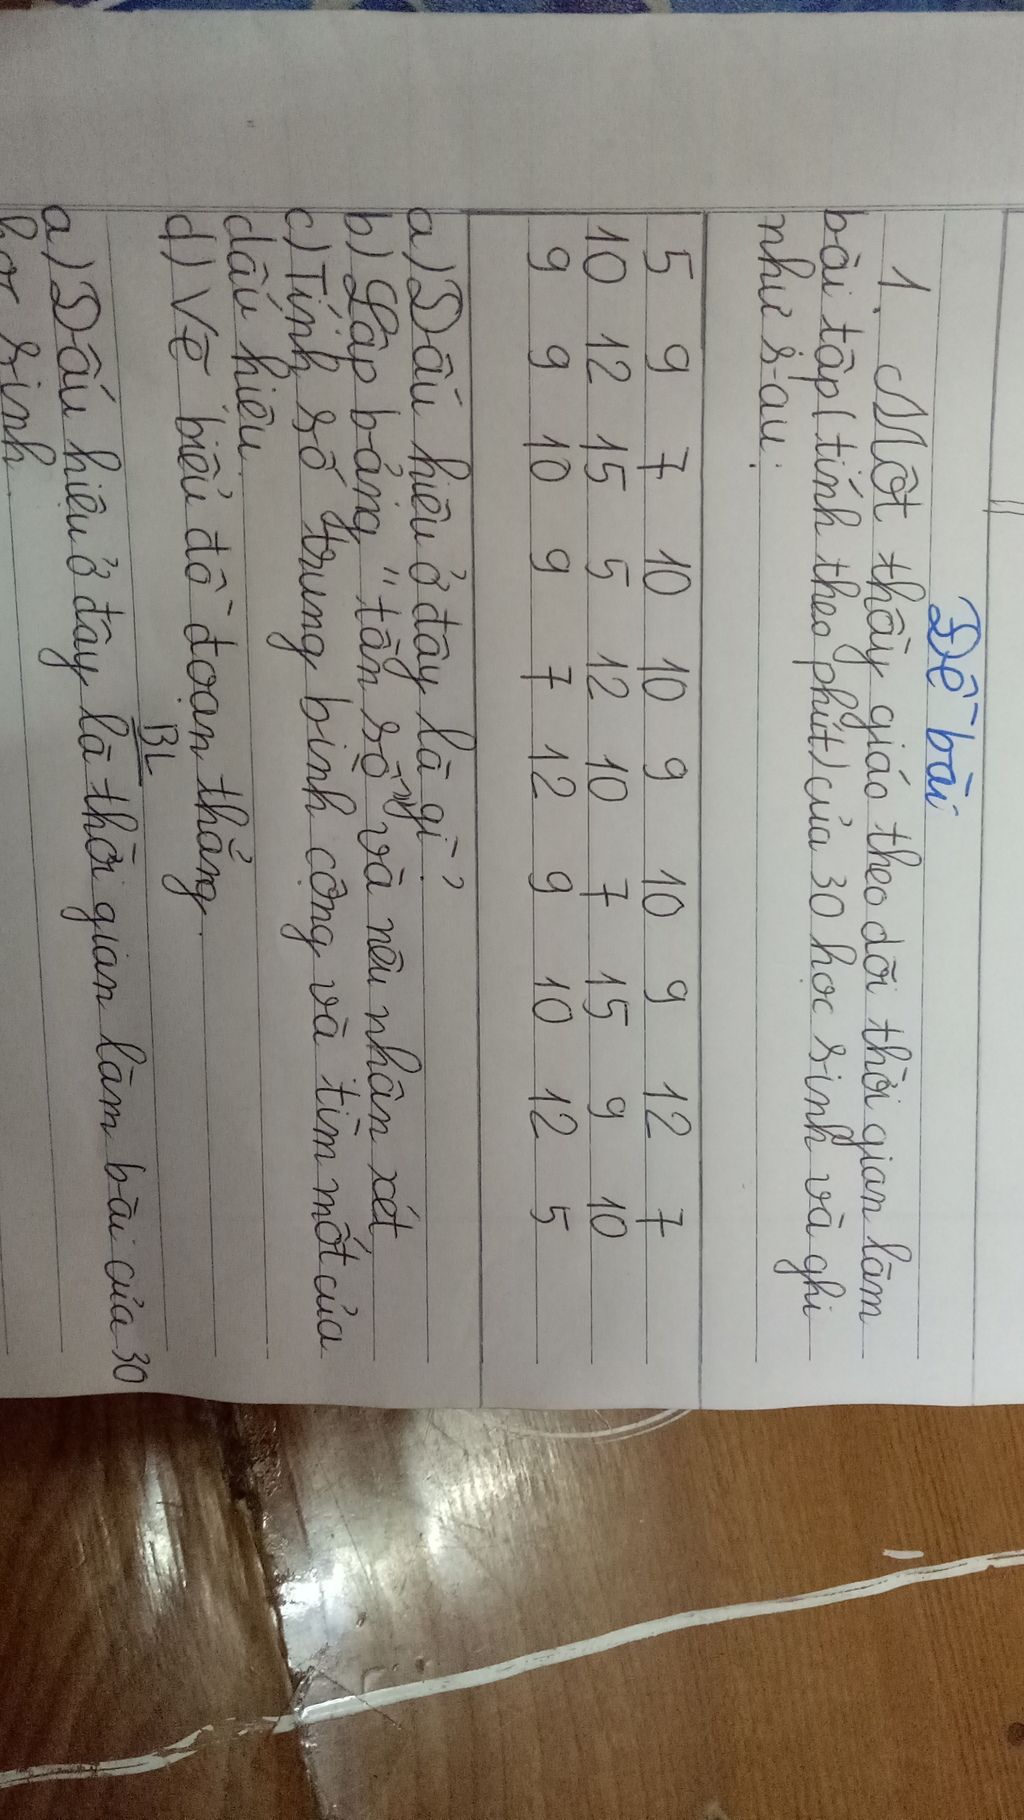 Đề bài
1. Một thầy giáo theo dõi thời gian làm
bài tập (tính theo phút) của 30 học sinh và ghi
như sau:
5 9 7 10 10 9 10 9 12 7
10 12 15 5 12 10 7 15 9 10
9 9 10 9 7 12 9 10 12 5
a) Dấu hiệu ở đây là gì?
b) Lập bảng "tần số" và nêu nhận xét
c) Tính số trung bình cộng và tìm mốt của
dấu hiệu.
d) Vẽ biểu đồ đoạn thẳng.
BL
a) Dấu hiệu ở đây là thời gian làm bài của 30
học sinh.